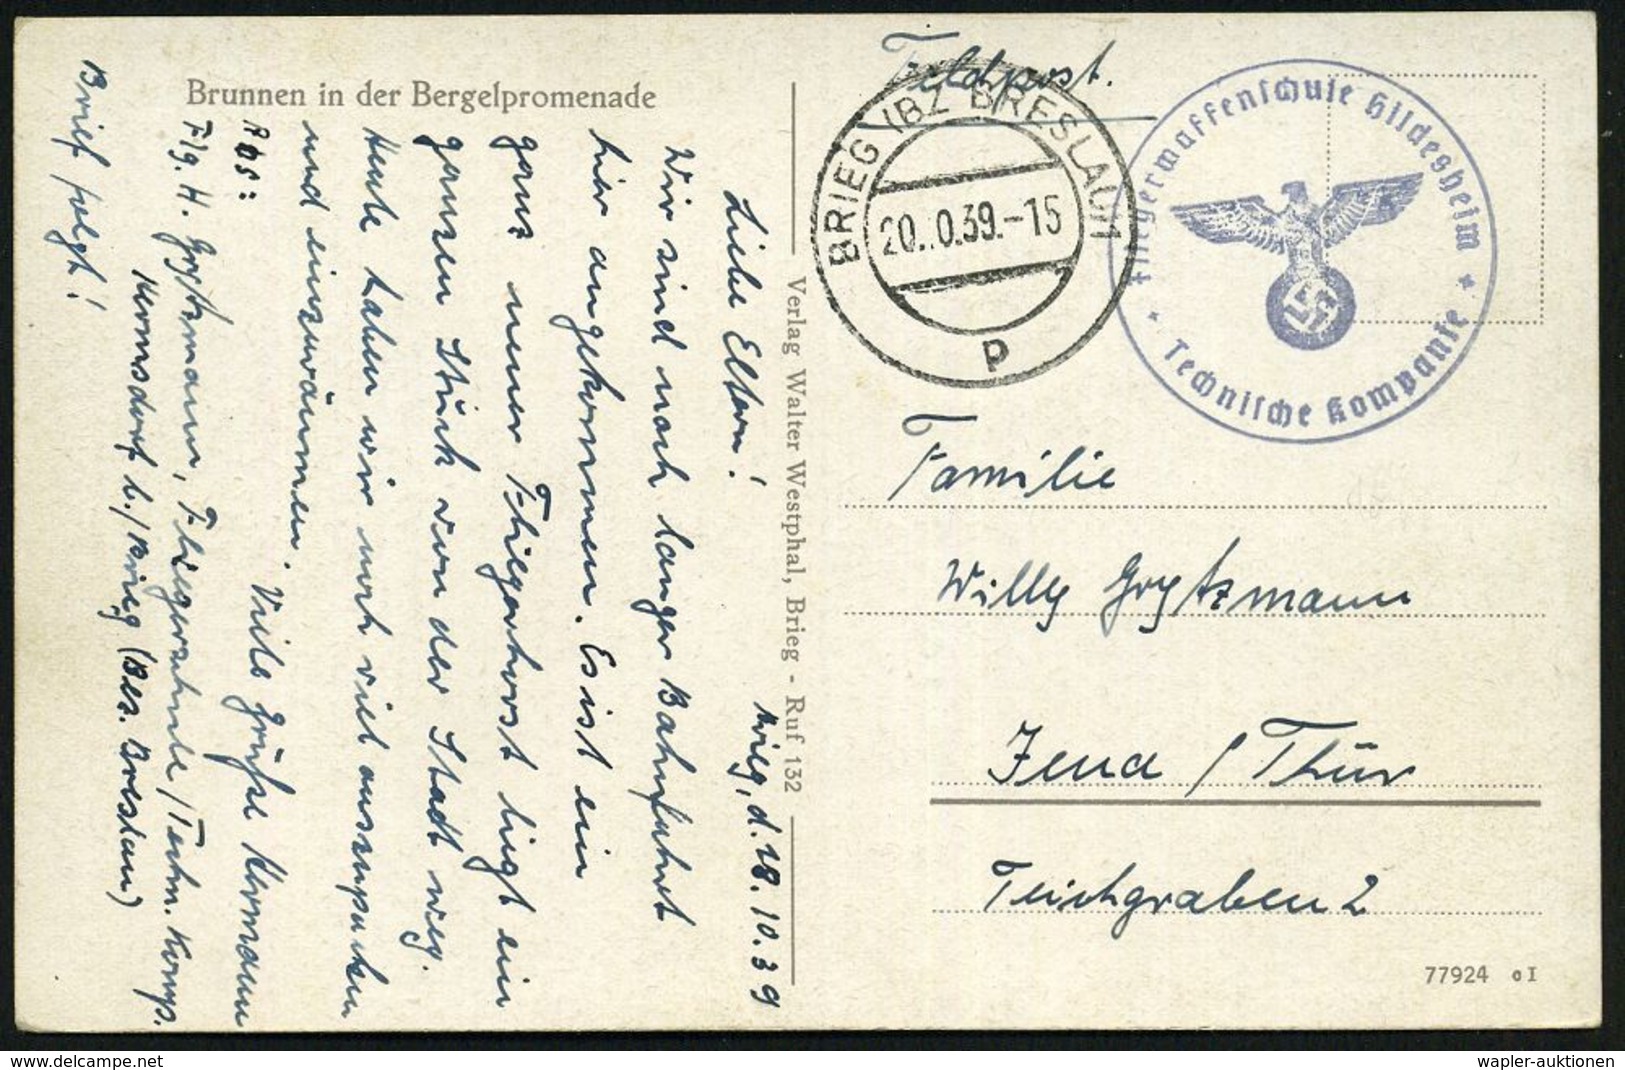 Brunnen in der Bergelpromenade
Brieg, d. 18.10.39
Liebe Eltern!
Wir sind nach langer Bahnfahrt
hier angekommen. Es ist ein
ganz neuer Fliegerhorst liegt ein
ganzes Stück von der Stadt weg.
Heute haben wir noch viel auszupacken
und einzuräumen.
Viele Grüße Hermann
Abs:
Flg. H. Grytzmann, Fliegerschule / Techn. Komp.
Hermsdorf b./Brieg (Bez. Breslau)
Brief folgt!
Verlag Walter Westphal, Brieg - Ruf 132
Feldpost.
BRIEG (BZ BRESLAU)
20..0.39.-15
p
Fliegerwaffenschule Hildesheim
* Technische Kompanie *
Familie
Willy Grytzmann
Jena / Thür
Teichgraben 2
77924 o I
www.delcampe.net
wapler-auktionen